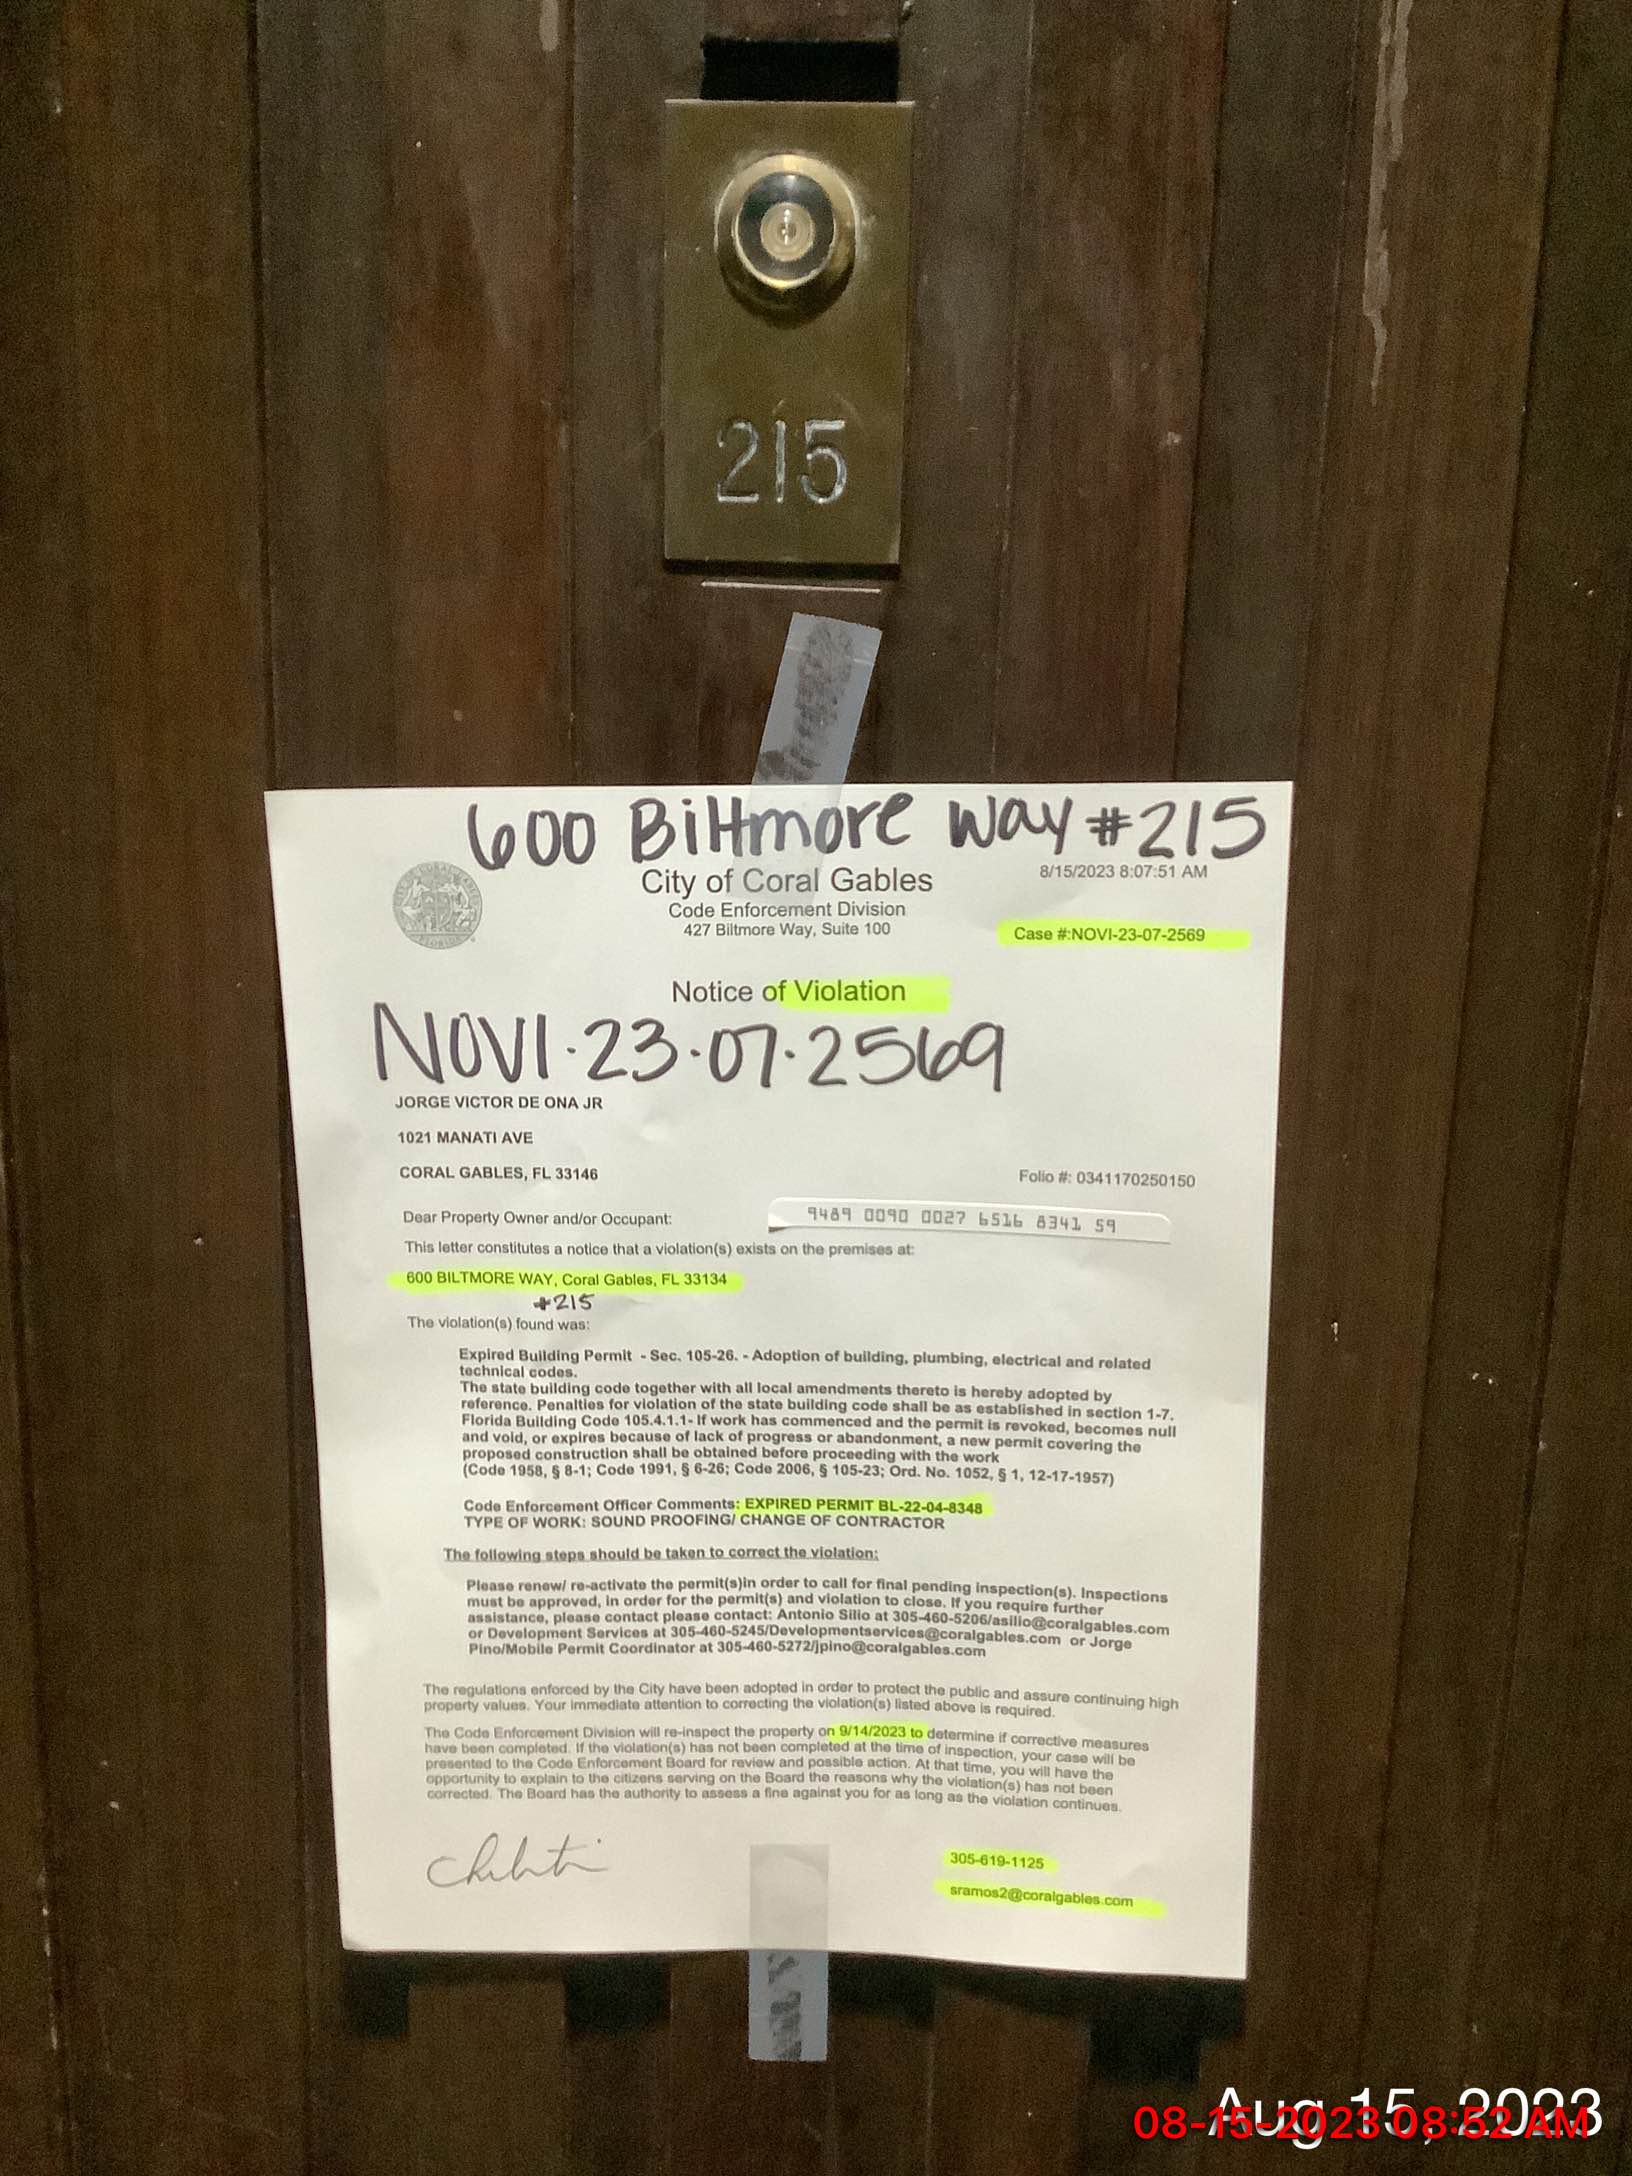 215
600 Biltmore Way #215
City of Coral Gables
8/15/2023 8:07:51 AM
Code Enforcement Division
427 Biltmore Way, Suite 100
Case #:NOVI-23-07-2569
Notice of Violation
NOVI·23·07·2569
JORGE VICTOR DE ONA JR
1021 MANATI AVE
CORAL GABLES, FL 33146
Folio #: 0341170250150
Dear Property Owner and/or Occupant:
9489 0090 0027 6516 8341 59
This letter constitutes a notice that a violation(s) exists on the premises at:
600 BILTMORE WAY, Coral Gables, FL 33134
#215
The violation(s) found was:
Expired Building Permit - Sec. 105-26. - Adoption of building, plumbing, electrical and related
technical codes.
The state building code together with all local amendments thereto is hereby adopted by
reference. Penalties for violation of the state building code shall be as established in section 1-7.
Florida Building Code 105.4.1.1- If work has commenced and the permit is revoked, becomes null
and void, or expires because of lack of progress or abandonment, a new permit covering the
proposed construction shall be obtained before proceeding with the work
(Code 1958, § 8-1; Code 1991, § 6-26; Code 2006, § 105-23; Ord. No. 1052, § 1, 12-17-1957)
Code Enforcement Officer Comments: EXPIRED PERMIT BL-22-04-8348
TYPE OF WORK: SOUND PROOFING/ CHANGE OF CONTRACTOR
The following steps should be taken to correct the violation:
Please renew/ re-activate the permit(s)in order to call for final pending inspection(s). Inspections
must be approved, in order for the permit(s) and violation to close. If you require further
assistance, please contact please contact: Antonio Silio at 305-460-5206/asilio@coralgables.com
or Development Services at 305-460-5245/Developmentservices@coralgables.com or Jorge
Pino/Mobile Permit Coordinator at 305-460-5272/jpino@coralgables.com
The regulations enforced by the City have been adopted in order to protect the public and assure continuing high
property values. Your immediate attention to correcting the violation(s) listed above is required.
The Code Enforcement Division will re-inspect the property on 9/14/2023 to determine if corrective measures
have been completed. If the violation(s) has not been completed at the time of inspection, your case will be
presented to the Code Enforcement Board for review and possible action. At that time, you will have the
opportunity to explain to the citizens serving on the Board the reasons why the violation(s) has not been
corrected. The Board has the authority to assess a fine against you for as long as the violation continues.
305-619-1125
sramos2@coralgables.com
Aug 15, 2023
08-15-2023 08:52 AM